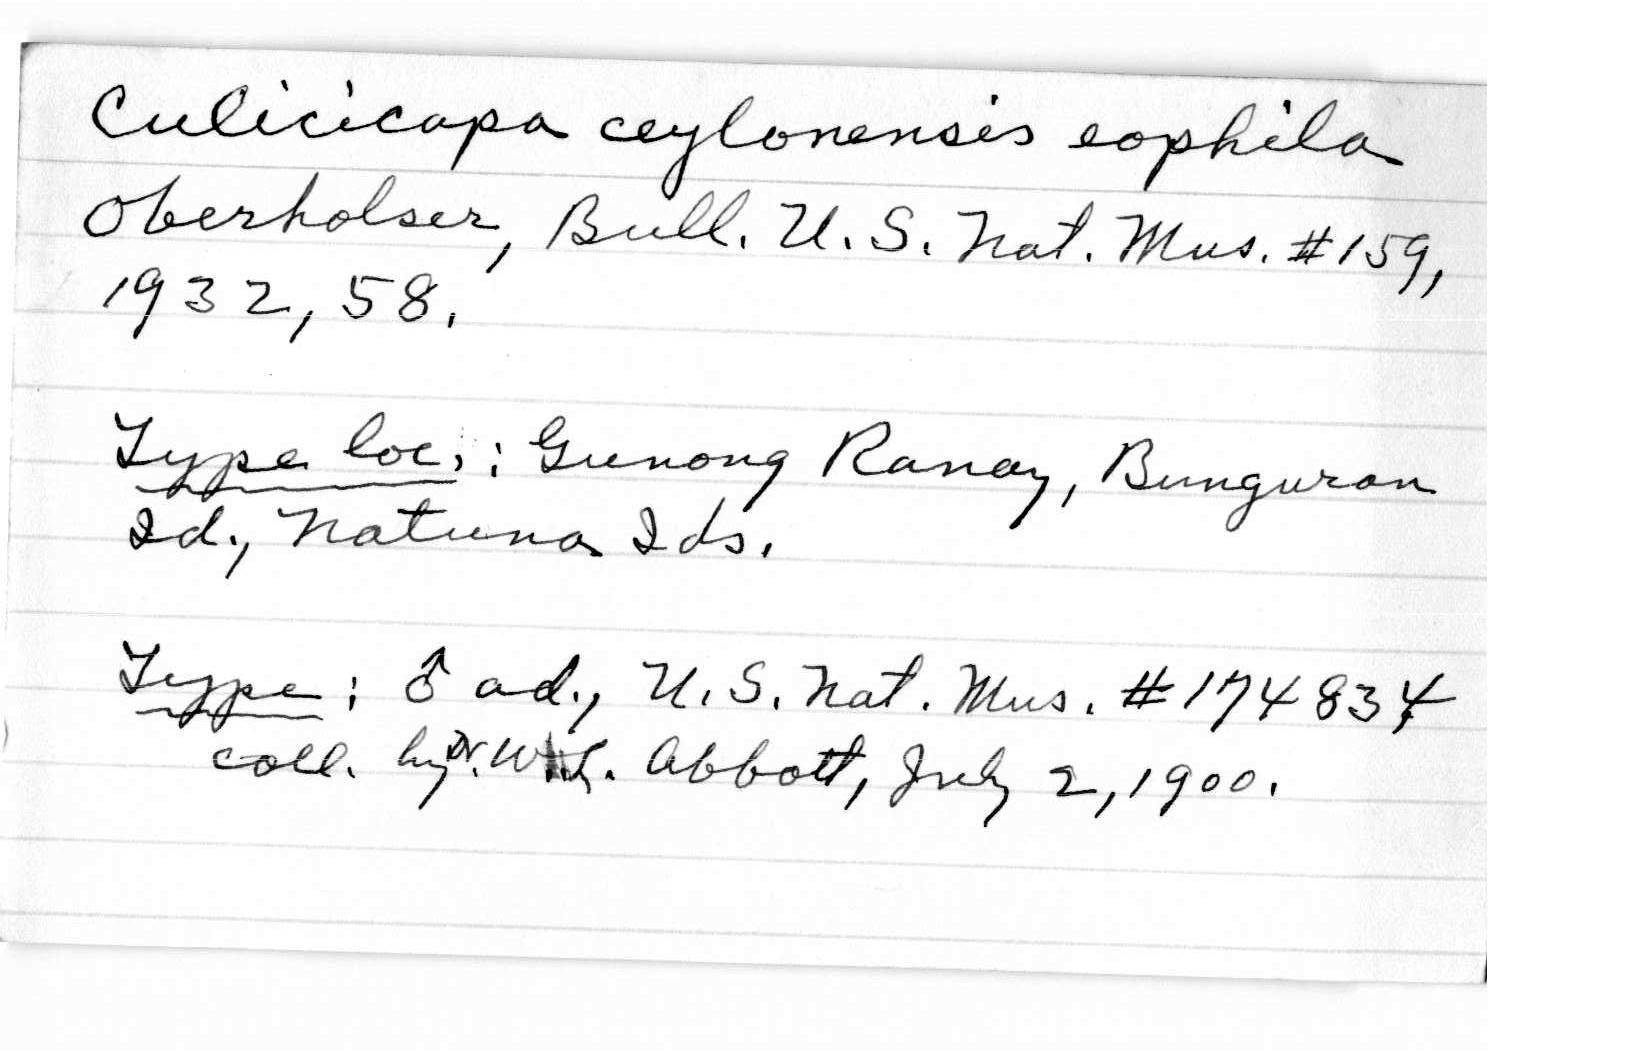 Culicicapa ceylonensis eophila
Oberholser, Bull. U.S. Nat. Mus. #159,
1932, 58.
Type loc.: Gunong Ranay, Bunguran
Id., Natuna Ids.
Type: ♂ ad., U.S. Nat. Mus. #174834
coll. by Dr. W.L. Abbott, July 2, 1900.